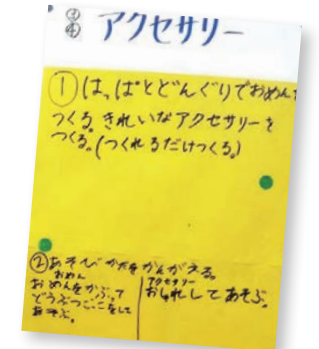 ③
④ アクセサリー
①はっぱとどんぐりでおめん
つくる。きれいなアクセサリーを
つくる。(つくれるだけつくる)
②あそびかたをかんがえる。
おめん
おめんをかぶって
どうぶつごっこをして
あそぶ。
アクセサリー
おしゃれしてあそぶ。